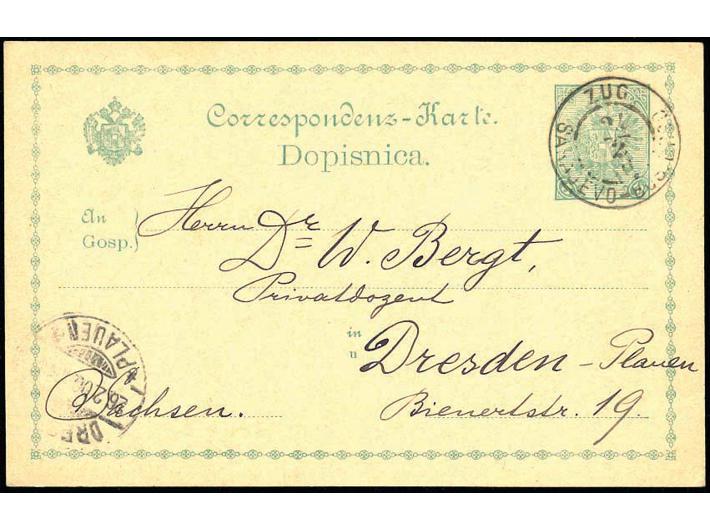 Correspondenz-Karte.
Dopisnica.
ZUG
SARAJEVO
An
Gosp.
Herrn Dr W. Bergt,
Privatdozent
in
u
Dresden - Plauen
Sachsen.
Bienertstr. 19.
PLAUEN
26.2.
DRE